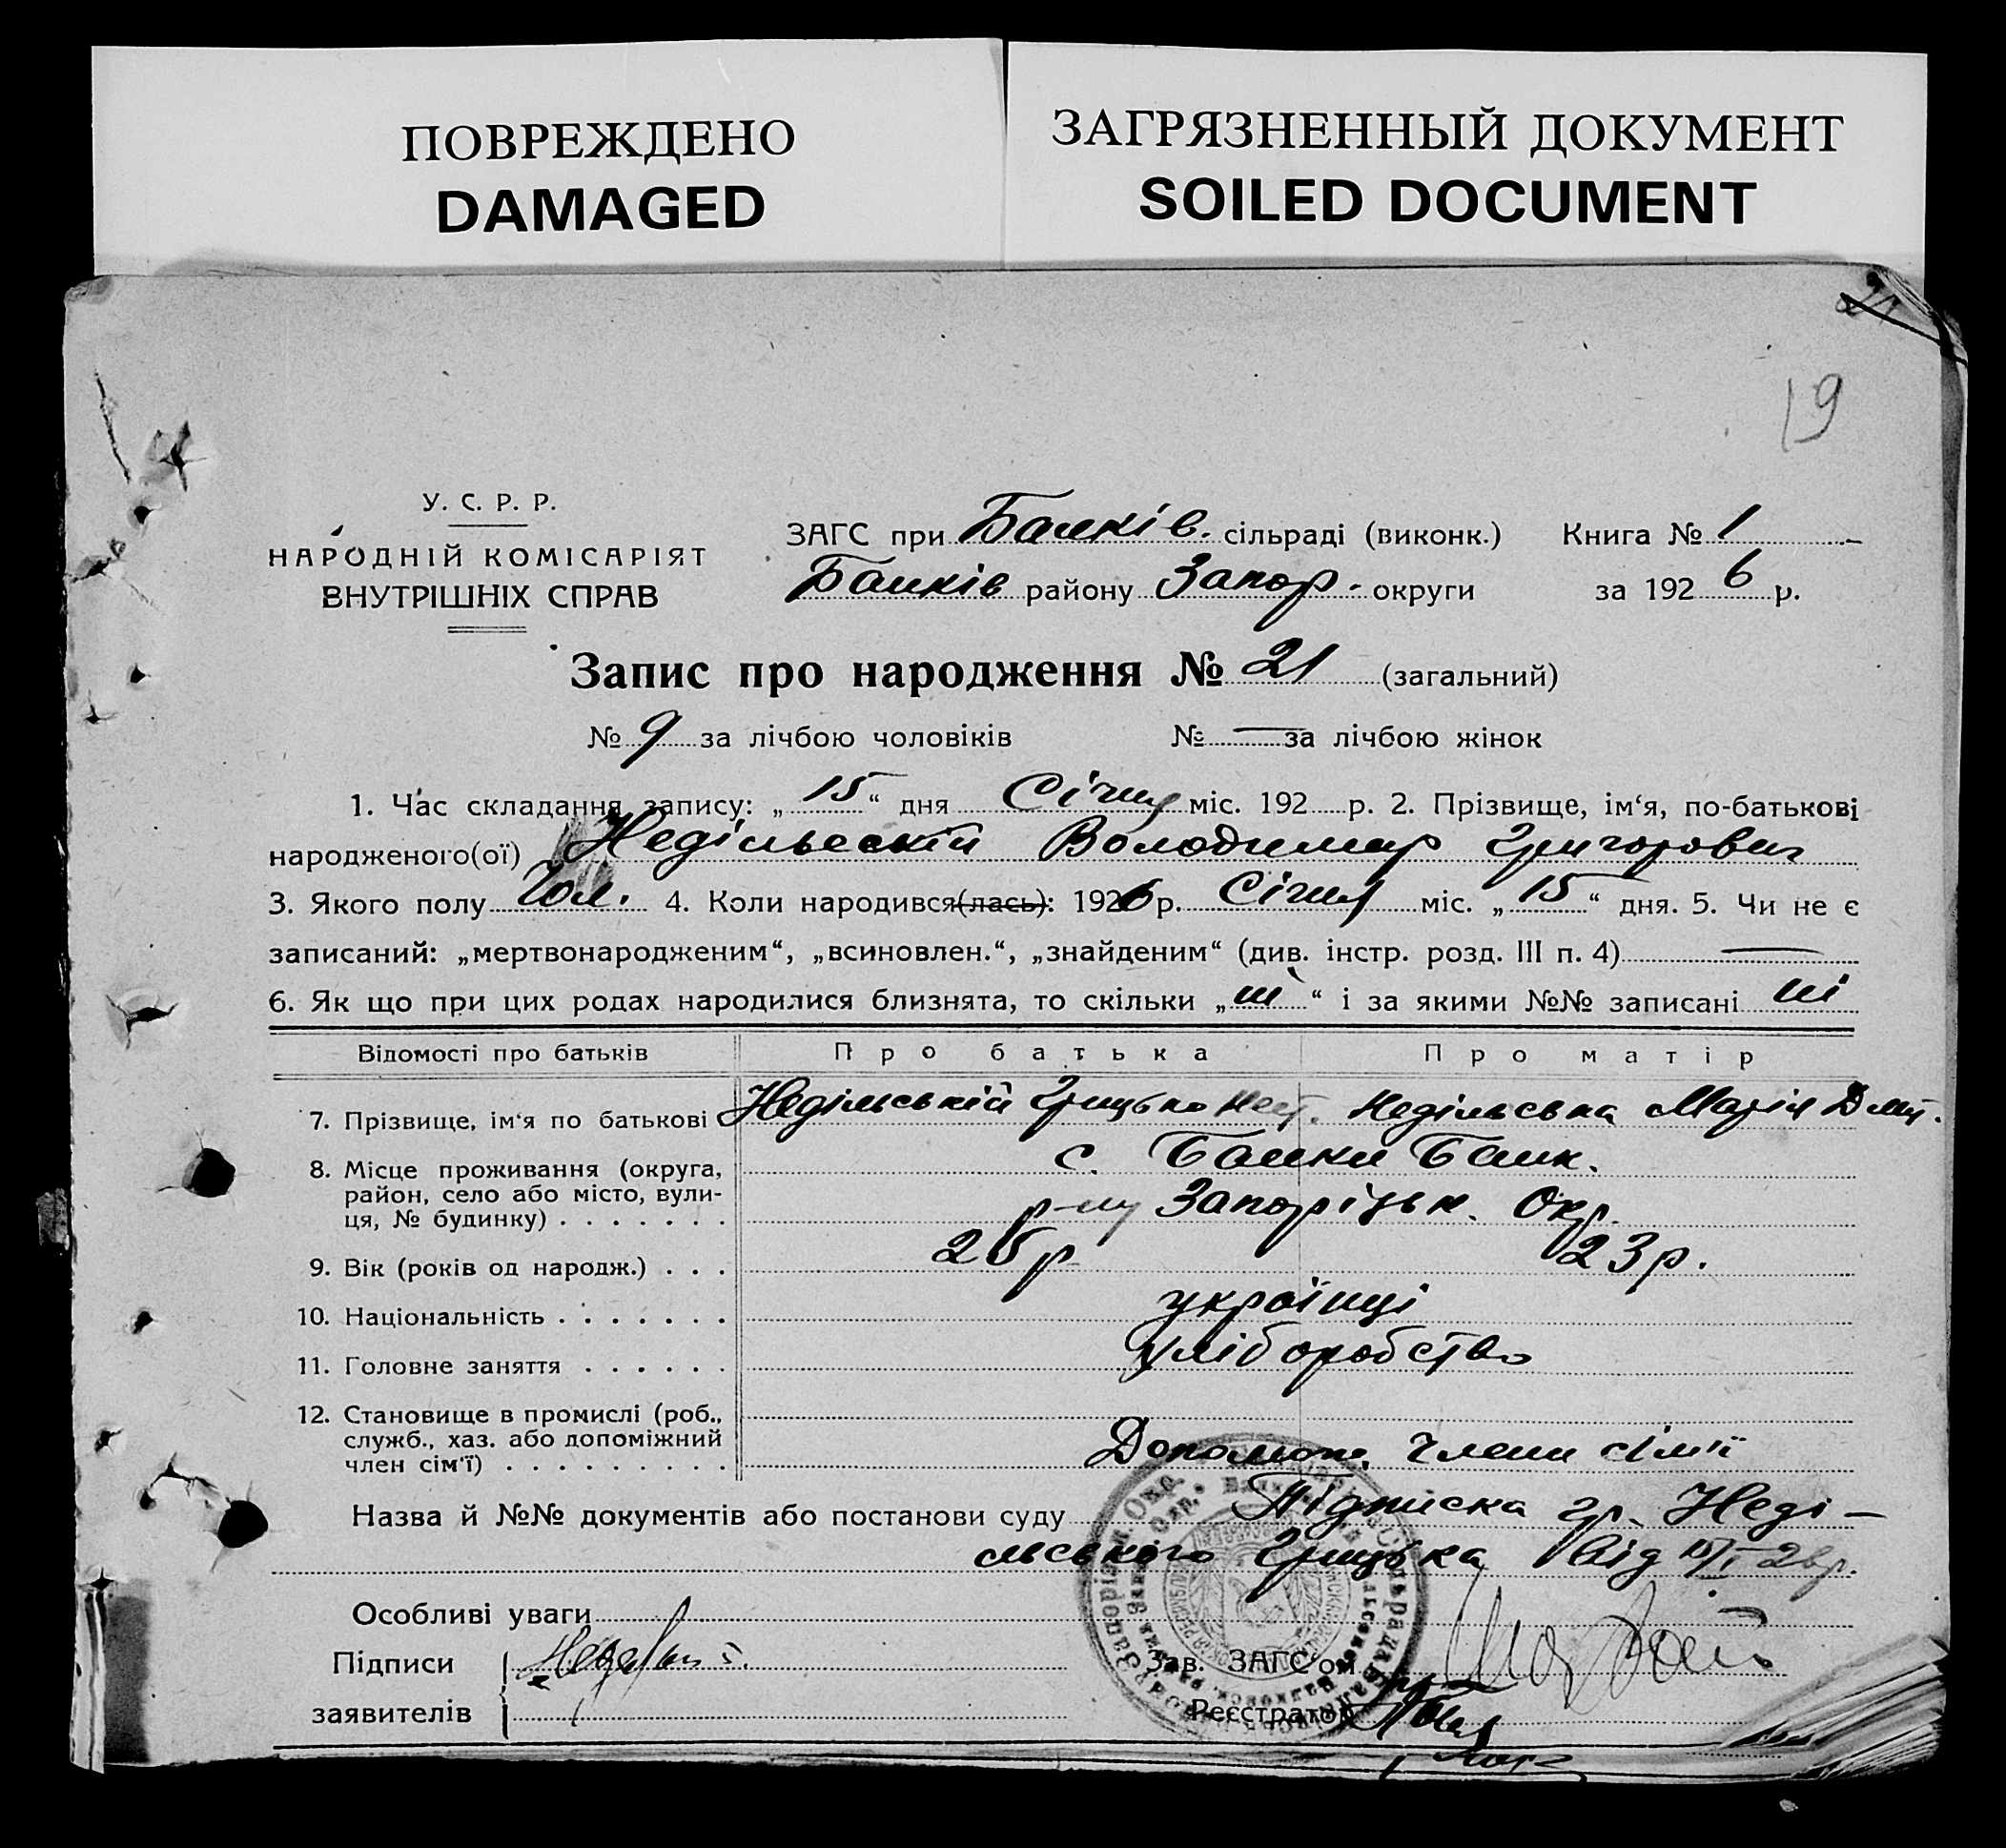 ПОВРЕЖДЕНО
DAMAGED
ЗАГРЯЗНЕННЫЙ ДОКУМЕНТ
SOILED DOCUMENT
19
У. С. Р. Р.
НАРОДНІЙ КОМІСАРІЯТ
ВНУТРІШНІХ СПРАВ
ЗАГС при Балків. сільраді (виконк.) Книга № 1
Балків району Запор. округи за 1926 р.
Запис про народження № 21 (загальний)
№ 9 за лічбою чоловіків № — за лічбою жінок
1. Час складання запису: „15“ дня Січня міс. 192 р. 2. Прізвище, ім‘я, по-батькові
народженого(ої) Недільській Володимир Григорович
3. Якого полу Чол. 4. Коли народився(лась): 1926 р. Січня міс. „15“ дня. 5. Чи не є
записаний: „мертвонародженим“, „всиновлен.“, „знайденим“ (див. інстр. розд. III п. 4) —
6. Як що при цих родах народилися близнята, то скільки „ні“ і за якими №№ записані ні
Відомості про батьків Про батька Про матір
7. Прізвище, ім‘я по батькові Недільській Грицько Недільська Марія Дми.
8. Місце проживання (округа, район, село або місто, вулиця, № будинку) с. Балки Балк.
р-ну Запорізьк. Окр.
9. Вік (років од народж.) 25 р 23 р.
10. Національність українці
11. Головне заняття хліборобство
12. Становище в промислі (роб., служб., хаз. або допоміжний член сім‘ї) Допомож. члени сім'ї
Назва й №№ документів або постанови суду Підписка гр. Неді-
льського Грицька від 15/I 26 р.
Особливі уваги
Підписи
заявителів
Зав. ЗАГС‘ом
Реєстратор